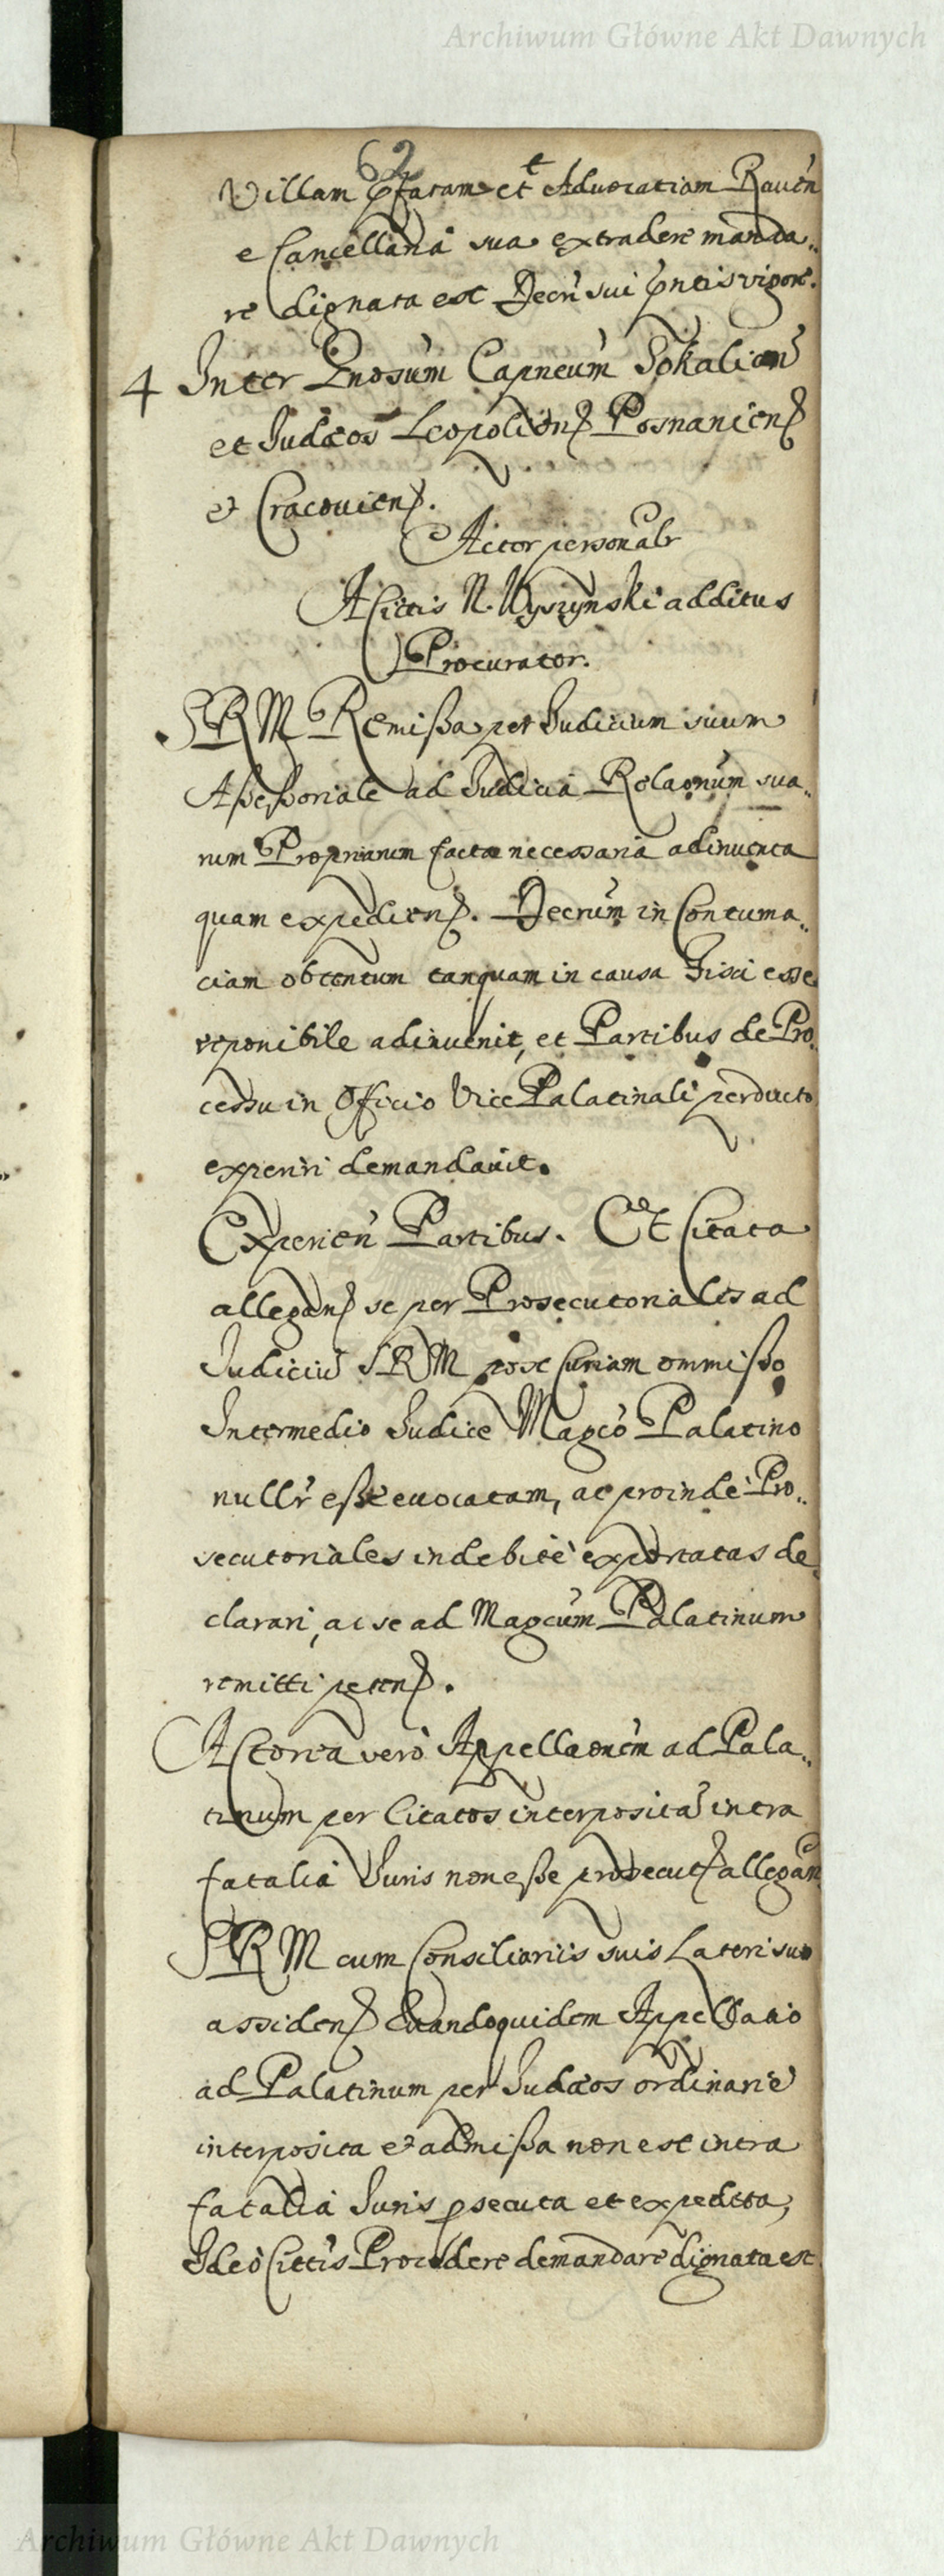 Archiwum Główne Akt Dawnych
62
Villam pfatam et Aduocatiam Raven
e Cancellaria sua extradere manda..
re dignata est Decri sui pntis vigore.
4 Inter Gnosum Capneum Sokalien
et Judæos Leopolien Posnanien
et Cracovien.
Actor personalr
A Cittis N. Wyszynski additus
Procurator.
SRM Remißa per Judicium suum
Aßeßoriale ad Judicia Relaonum sua..
rum Propriarum facta necessaria adinventa
quam expedien. Decrum in Contuma..
ciam obtentum tanquam in causa Fisci esse
reponibile adinuenit, et Partibus de Pro
cessu in Officio Vice Palatinali perducto
experiri demandavit.
Experien Partibus. Et Citata
allegan se per Prosecutorialis ad
Judiciu SRM post Curiam ommißo
Intermedio Judice Magco Palatino
nullr eße evocatam, ac proinde Pro..
secutoriales indebite exportatas de
clarari, ac se ad Magcum Palatinum
remitti peten.
Actorea vero Appellaonem ad Pala..
tinum per Citatos interposita intra
fatalia Juris non eße prosecut allegan
SRM cum Consiliariis suis Lateri suo
assiden Quandoquidem Appellatio
ad Palatinum per Judæos ordinarie
interposita et admißa non est intra
fatalia Juris psecuta et expedita,
Ideo Cittis Procedere demandare dignata est
Archiwum Główne Akt Dawnych